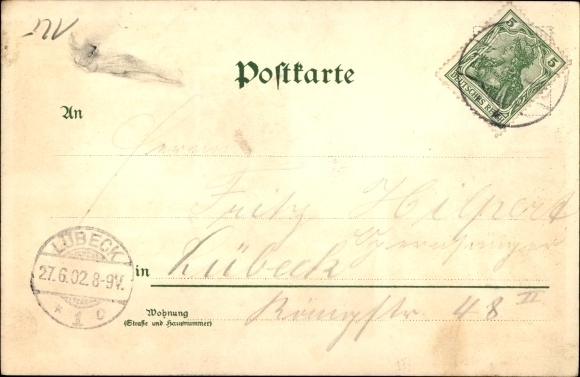 Postkarte
5 5
DEUTSCHES REICH
An
Herrn
Fritz Hilpert
LÜBECK
27.6.02.8-9V.
* 1 c
in Lübeck
Wohnung
(Straße und Hausnummer)
48 II